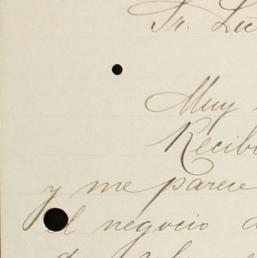 Sr. Lu
Muy
Recibi
y me parece
el negocio